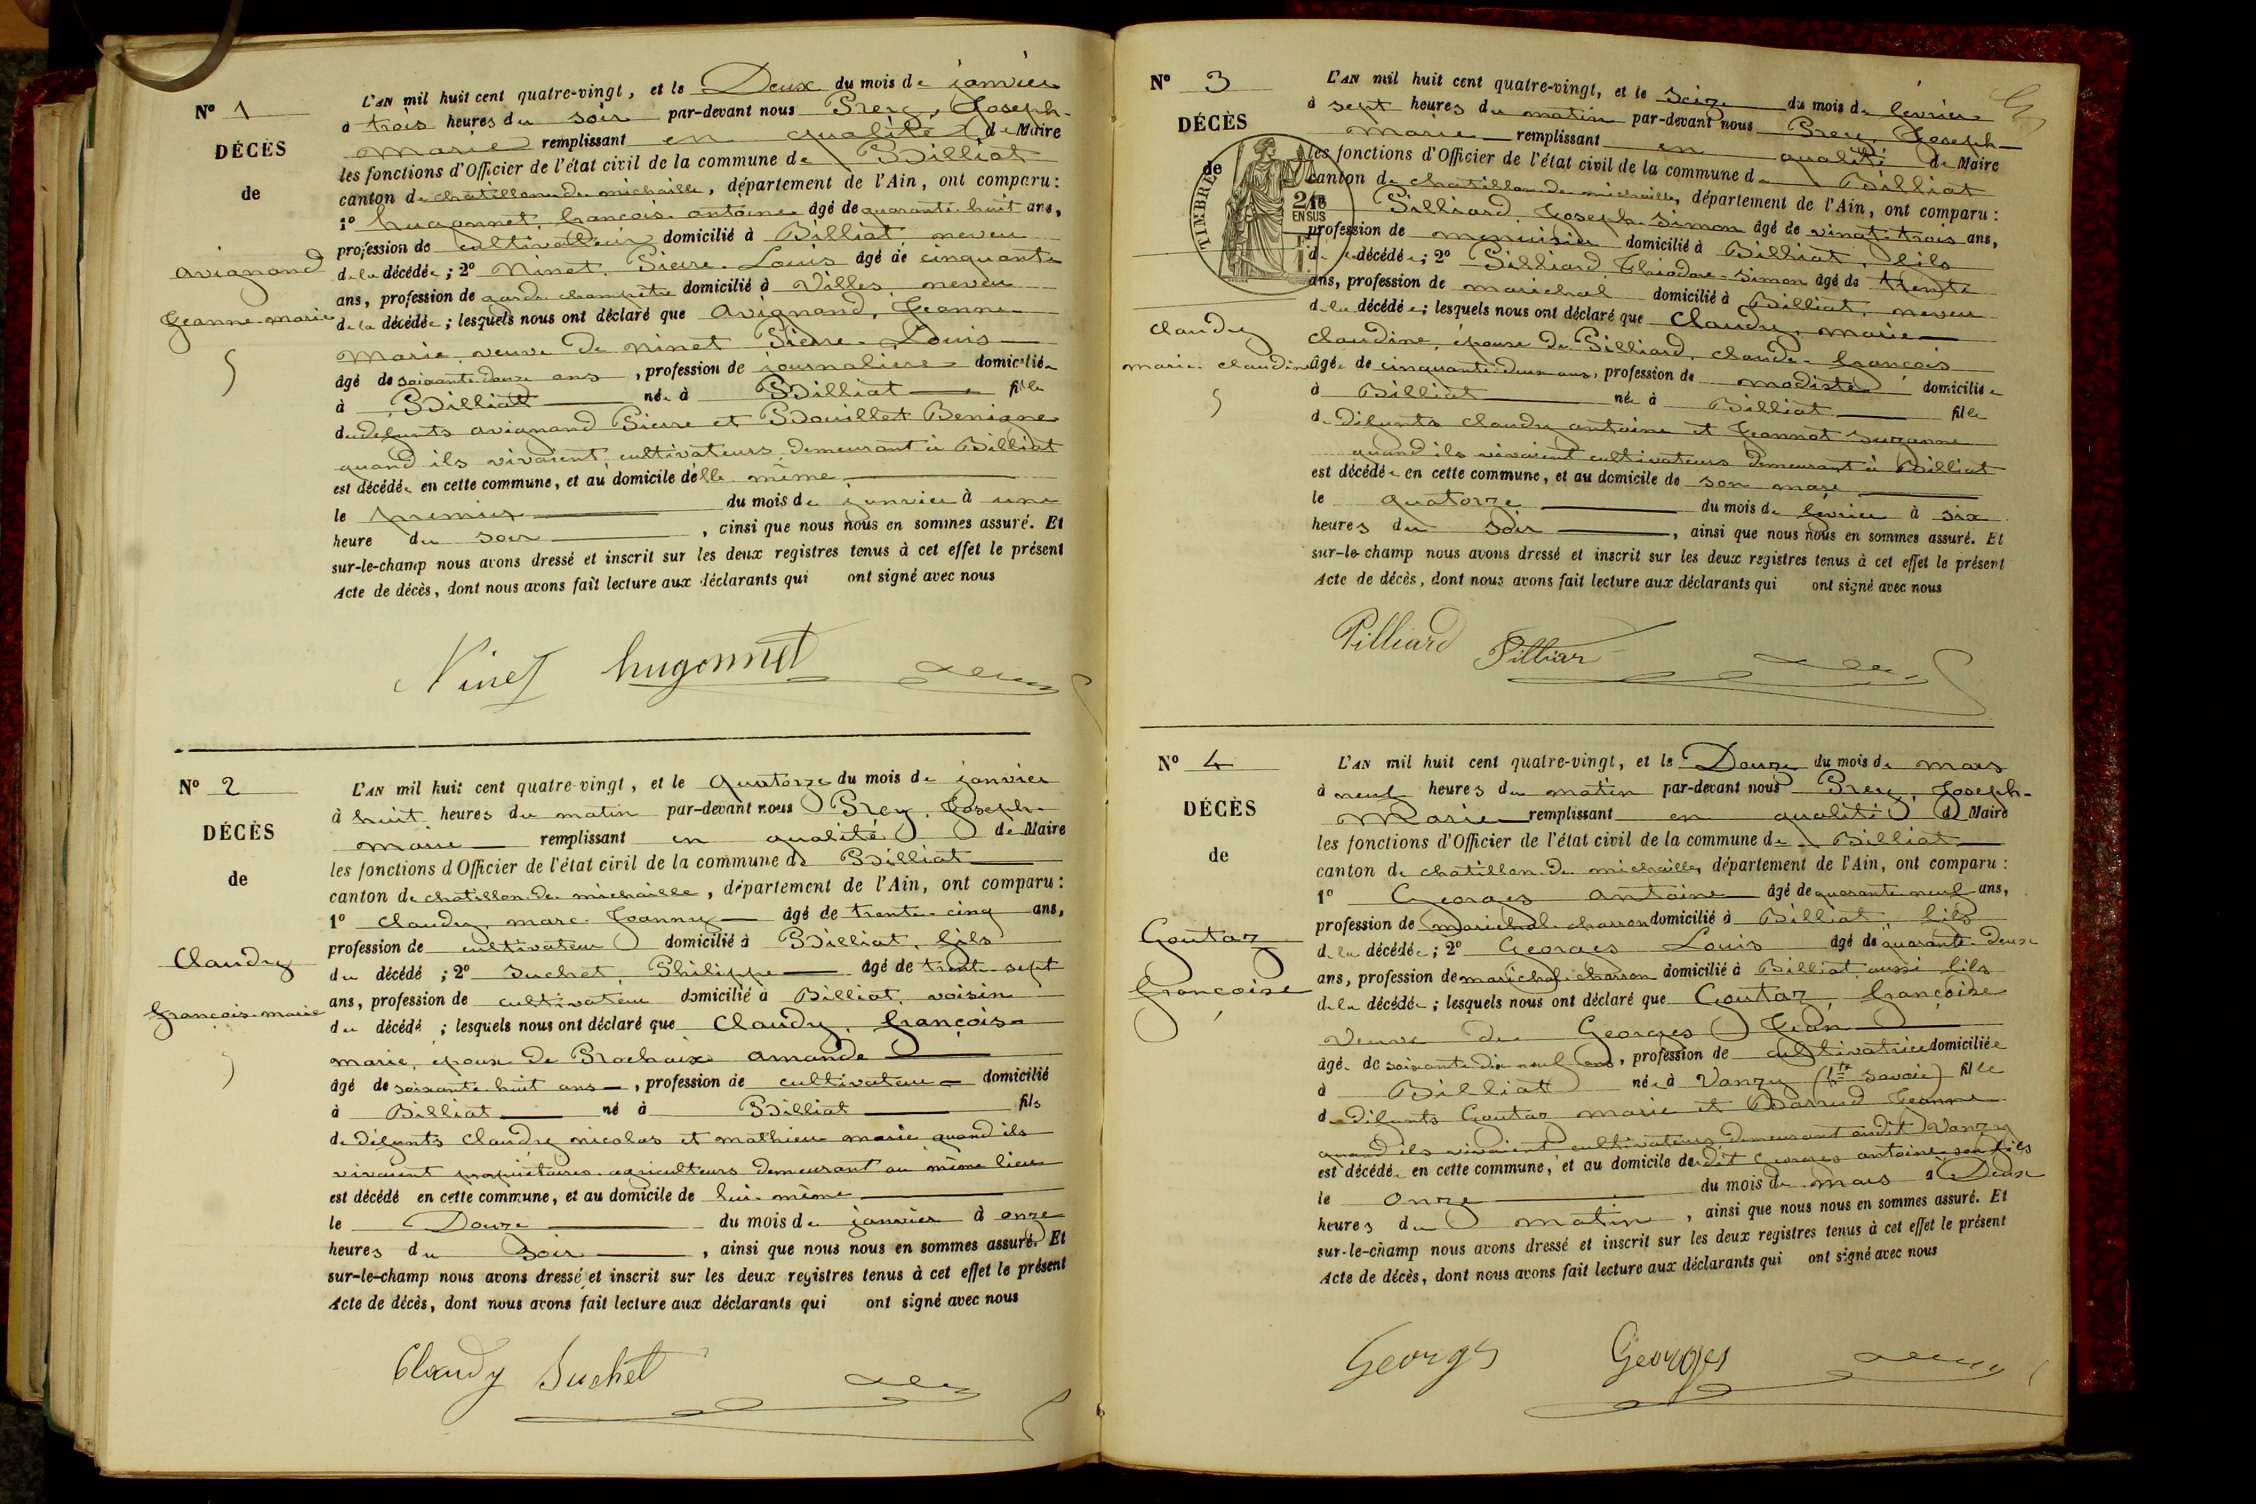 N° 1
DÉCÈS
de
avignand
Jeanne-marie
L'AN mil huit cent quatre-vingt, et le Deux du mois de janvier
à trois heures du soir par-devant nous Prery, Joseph-
Marie remplissant en qualité de Maire
les fonctions d'Officier de l'état civil de la commune de Billiat
canton de chatillon de michaille, département de l'Ain, ont comparu :
1° hugonnet, françois antoine âgé de quarante-huit ans,
profession de cultivateur domicilié à Billiat neveu
de la décédée ; 2° Ninet, Pierre-Louis âgé de cinquante
ans, profession de garde champêtre domicilié à Villes, neveu
de la décédée ; lesquels nous ont déclaré que avignand, Jeanne
Marie, veuve de ninet Pierre-Louis
âgé de soixante douze ans, profession de journaliere domiciliée
à Billiat née à Billiat fille
de défunts avignand Pierre et Bouillet Benigne
quand ils vivaient cultivateurs demeurant à Billiat
est décédée en cette commune, et au domicile d'elle même
le premier du mois de janvier à une
heure du soir, ainsi que nous nous en sommes assuré. Et
sur-le-champ nous avons dressé et inscrit sur les deux registres tenus à cet effet le présent
Acte de décès, dont nous avons fait lecture aux déclarants qui ont signé avec nous
Ninet hugonnet
N° 2
DÉCÈS
de
Claudy
françois-marie
L'AN mil huit cent quatre-vingt, et le quatorze du mois de janvier
à huit heures du matin par-devant nous Prery, Joseph-
marie remplissant en qualité de Maire
les fonctions d'Officier de l'état civil de la commune de Billiat
canton de chatillon de michaille, département de l'Ain, ont comparu :
1° claudy, marc-Joanny âgé de trente-cinq ans,
profession de cultivateur domicilié à Billiat, fils
du décédé ; 2° suchet, Philippe âgé de trente-sept
ans, profession de cultivateur domicilié à Billiat, voisin
du décédé ; lesquels nous ont déclaré que Claudy, françois-
marie, époux de Brochaix amande
âgé de soixante huit ans, profession de cultivateur domicilié
à Billiat né à Billiat fils
de défunts claudy nicolas et mathieu marie quand ils
vivaient propriétaires agriculteurs demeurant au même lieu
est décédé en cette commune, et au domicile de lui-même
le Douze du mois de janvier à onze
heures du soir, ainsi que nous nous en sommes assuré. Et
sur-le-champ nous avons dressé et inscrit sur les deux registres tenus à cet effet le présent
Acte de décès, dont nous avons fait lecture aux déclarants qui ont signé avec nous
Claudy Suchet
N° 3
DÉCÈS
de
TIMBRE
2/10
EN SUS
claudy
marie-claudine
L'AN mil huit cent quatre-vingt, et le seize du mois de février
à sept heures du matin par-devant nous Prery, Joseph-
Marie remplissant en qualité de Maire
les fonctions d'Officier de l'état civil de la commune de Billiat
canton de chatillon de michaille, département de l'Ain, ont comparu :
Pilliard, Joseph-simon âgé de vingt-trois ans,
profession de menuisier domicilié à Billiat, fils
de décédée ; 2° Pilliard, Théodore-simon âgé de trente
ans, profession de marichal domicilié à Billiat, neveu
de la décédée ; lesquels nous ont déclaré que Claudy, marie
claudine, épouse de Pilliard, claude-françois
âgée de cinquante deux ans, profession de modiste domiciliée
à Billiat née à Billiat fille
de défunts claudy antoine et Jeannet suzanne
quand ils vivaient cultivateurs demeurant à Billiat
est décédée en cette commune, et au domicile de son mari
le quatorze du mois de février à six
heures du soir, ainsi que nous nous en sommes assuré. Et
sur-le-champ nous avons dressé et inscrit sur les deux registres tenus à cet effet le présent
Acte de décès, dont nous avons fait lecture aux déclarants qui ont signé avec nous
Pilliard Pilliar
N° 4
DÉCÈS
de
Goutaz
françoise
L'AN mil huit cent quatre-vingt, et le Douze du mois de mars
à neuf heures du matin par-devant nous Prery, Joseph-
Marie remplissant en qualité de Maire
les fonctions d'Officier de l'état civil de la commune de Billiat
canton de chatillon de michaille, département de l'Ain, ont comparu :
1° Georges antoine âgé de quarante neuf ans,
profession de marichal charron domicilié à Billiat, fils
de la décédée ; 2° Georges Louis âgé de quarante-deux
ans, profession de marichal charron domicilié à Billiat, aussi fils
de la décédée ; lesquels nous ont déclaré que Goutaz, françoise
veuve de Georges Jean
âgée de soixante dix neuf ans, profession de cultivatrice domiciliée
à Billiat née à Vanzy (hte savoie) fille
de défunts Goutaz marie et Barrud Jeanne
quand ils vivaient cultivateurs demeurant audit Vanzy
est décédée en cette commune, et au domicile dudit Georges antoine son fils
le onze du mois de mars à Deux
heures du matin, ainsi que nous nous en sommes assuré. Et
sur-le-champ nous avons dressé et inscrit sur les deux registres tenus à cet effet le présent
Acte de décès, dont nous avons fait lecture aux déclarants qui ont signé avec nous
Georges Georges